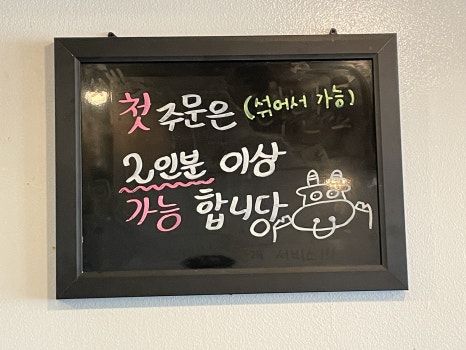 첫 주문은 (섞어서 가능)
2인분 이상
가능 합니당